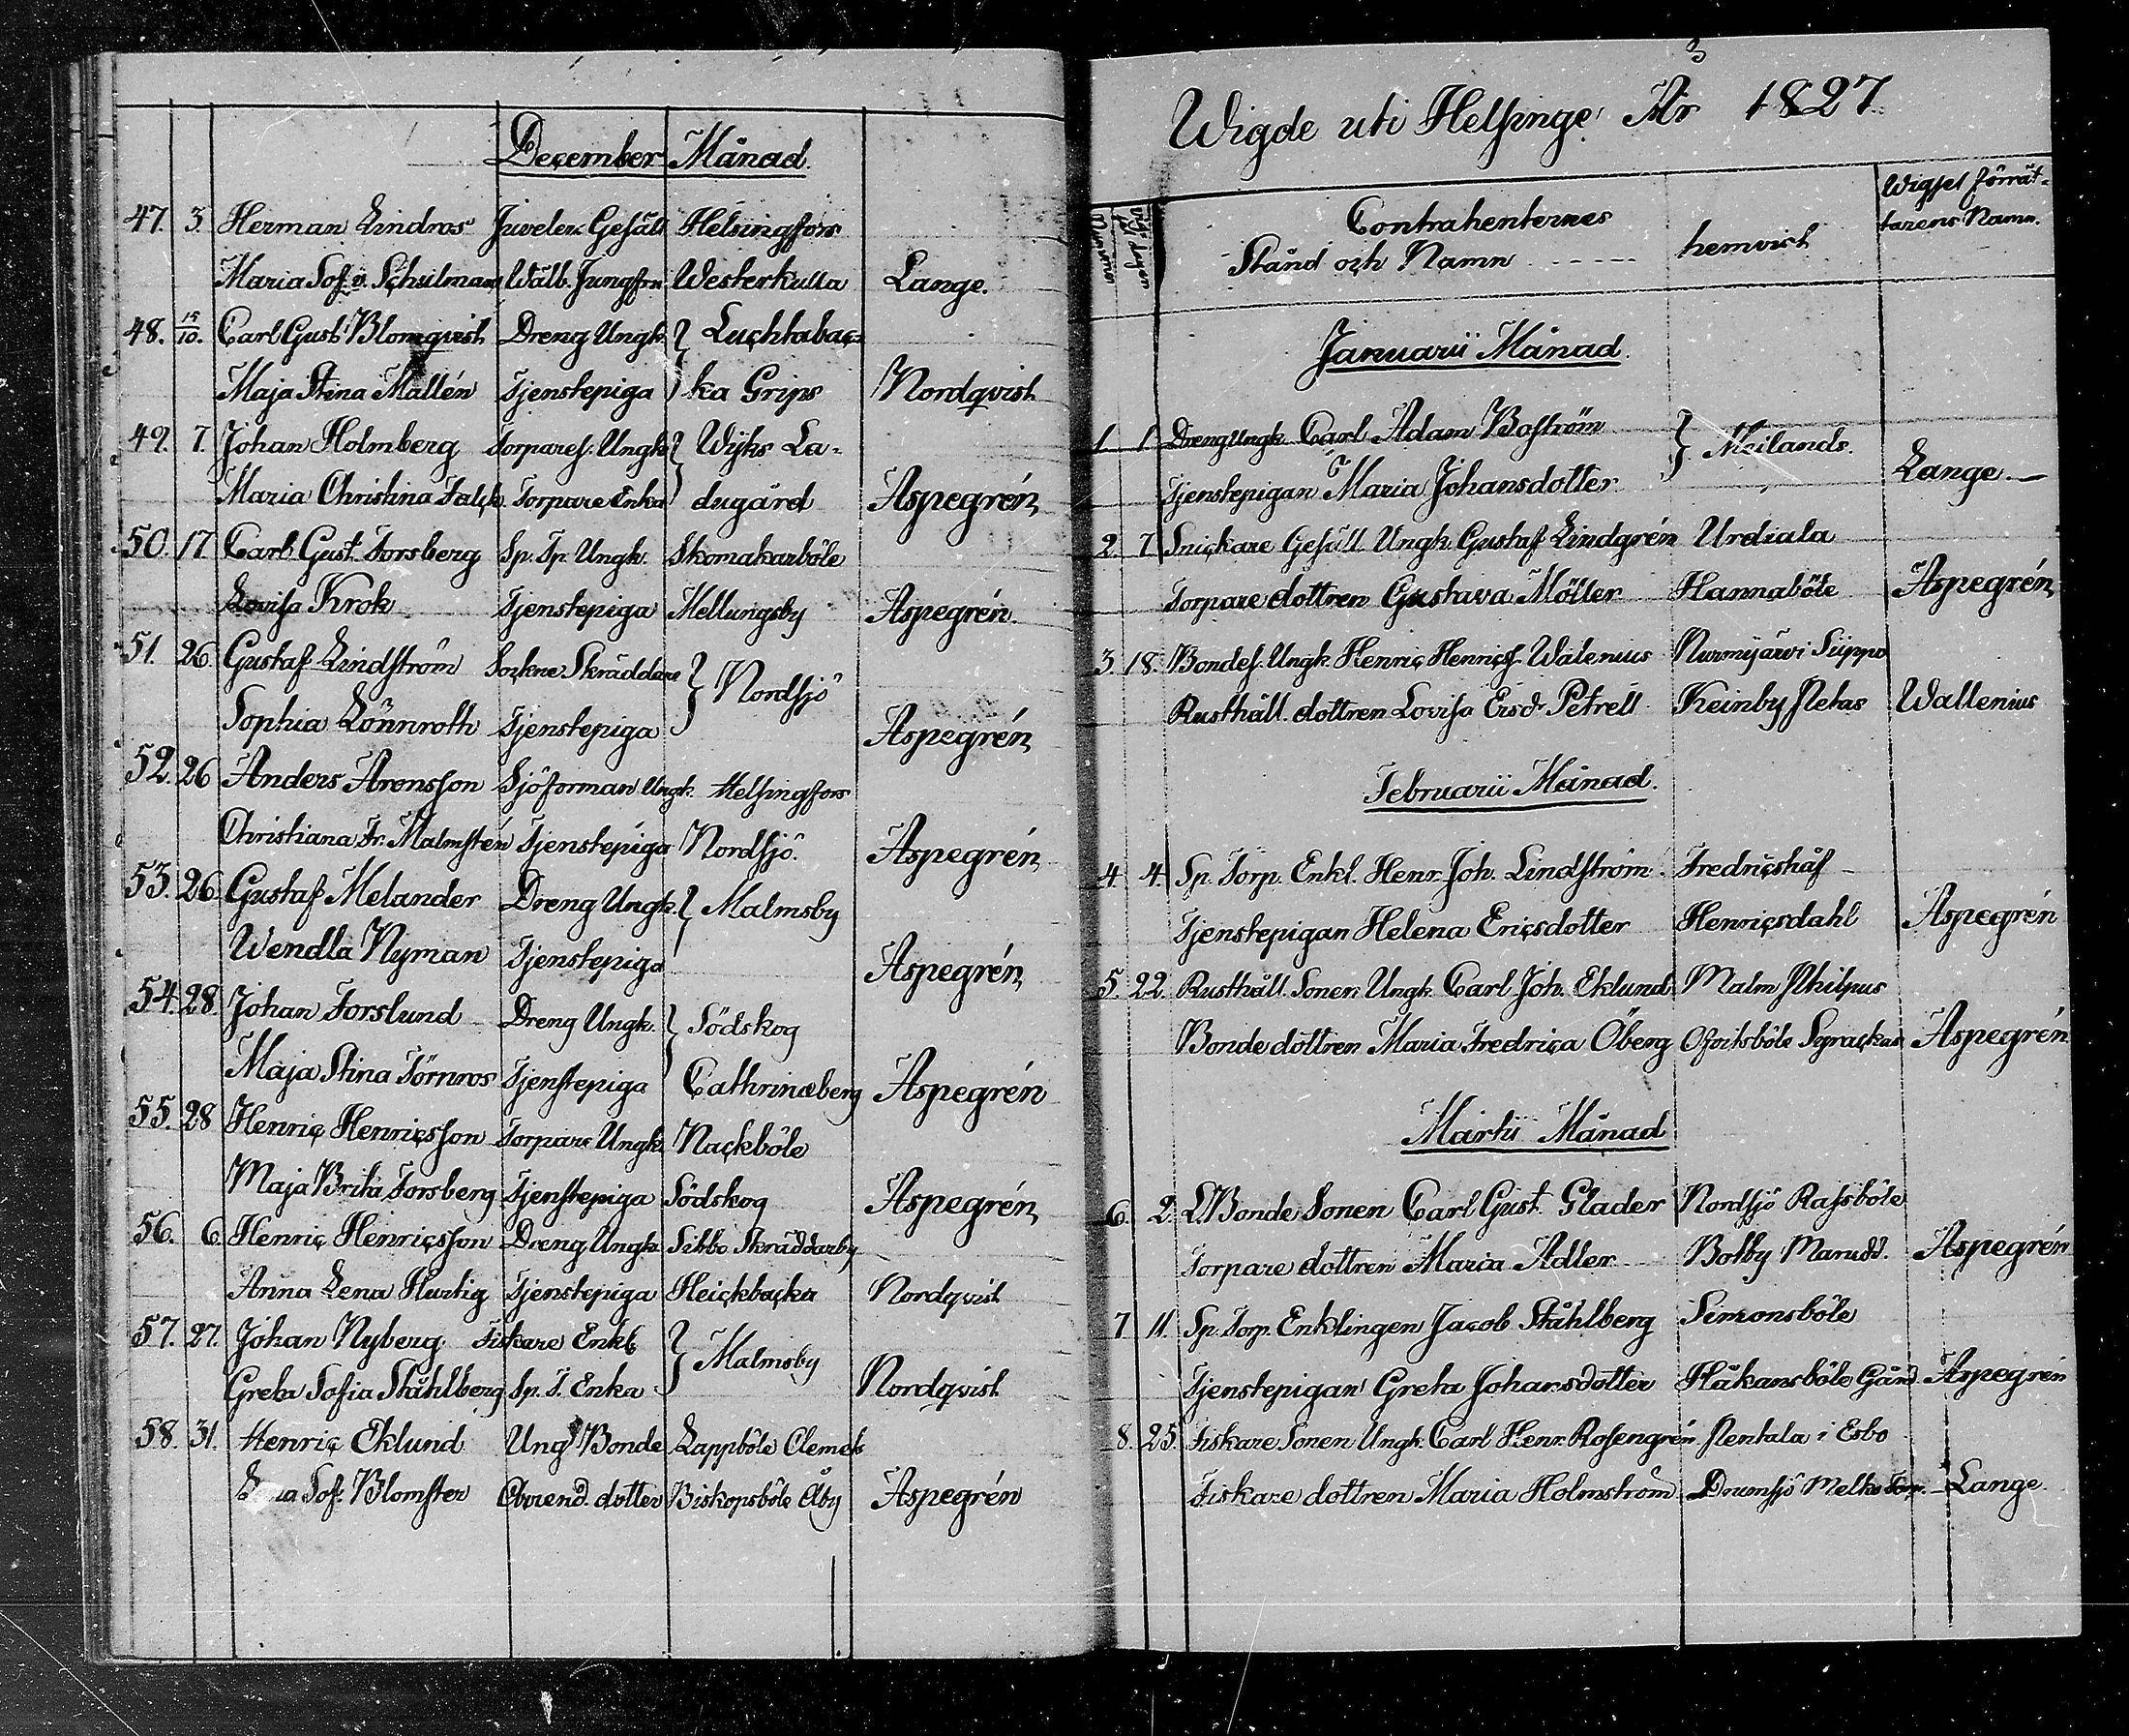 December Månad.
47. 3. Herman Lindros Juvelers Gesäll Helsingfors
Maria Sof. v. Schulman Wälb. Jungfru Westerkulla Lange.
48. 15/10. Carl Gust. Blomqvist Dreng Ungk. } Luchtabac-
Maja Stina Mallén Tjenstepiga ka Grips Nordqvist
49. 7. Johan Holmberg Torparef. Ungk. } Wijks La-
Maria Christina Falck Torpare Enka dugård Aspegrén
50. 17. Carl Gust. Forsberg Sp. Tp. Ungk. Skomakarböle
Lovisa Krok Tjenstepiga Mellungsby Aspegrén.
51. 26. Gustaf Lindström Sockne Skräddare } Nordsjö
Sophia Lönnroth Tjenstepiga Aspegrén
52. 26 Anders Aronsson Sjöforman Ungk. Helsingfors
Christiana Fr. Malmstén Tjenstepiga Nordsjö. Aspegrén
53. 26. Gustaf Melander Dreng Ungk. } Malmsby
Wendla Nyman Tjenstepiga Aspegrén
54. 28. Johan Forslund Dreng Ungk. } Södskog
Maja Stina Törnros Tjenstepiga Cathrinæberg Aspegrén
55. 28 Henric Henricsson Torpare Ungk. Nackböle
Maja Brita Forsberg Tjenstepiga Södskog Aspegrén
56. 6. Henric Henricsson Dreng Ungk. Sibbo Skräddarby
Anna Lena Hurtig Tjenstepiga Heickbacka Nordqvist
57. 27. Johan Nyberg Fiskare Enkl. } Malmsby
Greta Sofia Ståhlberg Sp. T. Enka Nordqvist
58. 31. Henric Eklund Ung Bonde Lappböle Clemets
Sof. Blomster Arrend. dotter Biskopsböle Åby Aspegrén
3
Wigde uti Helsinge År 1827.
Contrahenternes Wigsel förrät-
Stånd och Namn hemvist tarens Namn.
Januarii Månad.
1 1 Dreng Ungk. Carl Adam Boström } Meilands.
Tjenstepigan Maria Johansdotter Lange.
2. 7 Snickare Gesäll Ungk. Gustaf Lindgrén Urdiala
Torpare dottren Gustava Möller Hannaböle Aspegrén
3. 18. Bondes. Ungk. Henric Henricss. Walenius Nurmijärvi Siippo
Rusthåll. dottren Lovisa Ersd. Petrell Keinby Petas Wallenius
Februarii Månad.
4. 4. Sp. Torp. Enkl. Henr. Joh. Lindström Fredricshäf
Tjenstepigan Helena Ericsdotter Henricsdahl Aspegrén
5. 22. Rusthåll. Sonen Ungk. Carl Joh. Eklund Malm Philpus
Bonde dottren Maria Fredrica Öberg Ofvitsböle Sgrackas Aspegrén
Martii Månad
6. 2. L. Bonde Sonen Carl Gust. Glader Nordsjö Rassböle
Torpare dottren Maria Adler Botby Marudd. Aspegrén
7 11. Sp. Torp. Enklingen Jacob Ståhlberg Simonsböle
Tjenstepigan Greta Johansdotter Håkansböle Gård Aspegrén
8. 25. Fiskare Sonen Ungk. Carl Henr. Rosengrén Pentala i Esbo
Fiskare dottren Maria Holmström Drumsjö Melkö Torp. Lange.